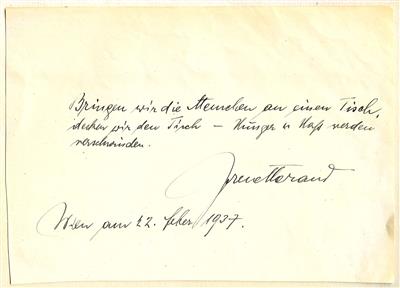 Bringen wir die Menschen an einen Tisch,
decken wir den Tisch – Hunger u Haß werden
verschwinden.
Irene Harand
Wien am 22. feber 1937.